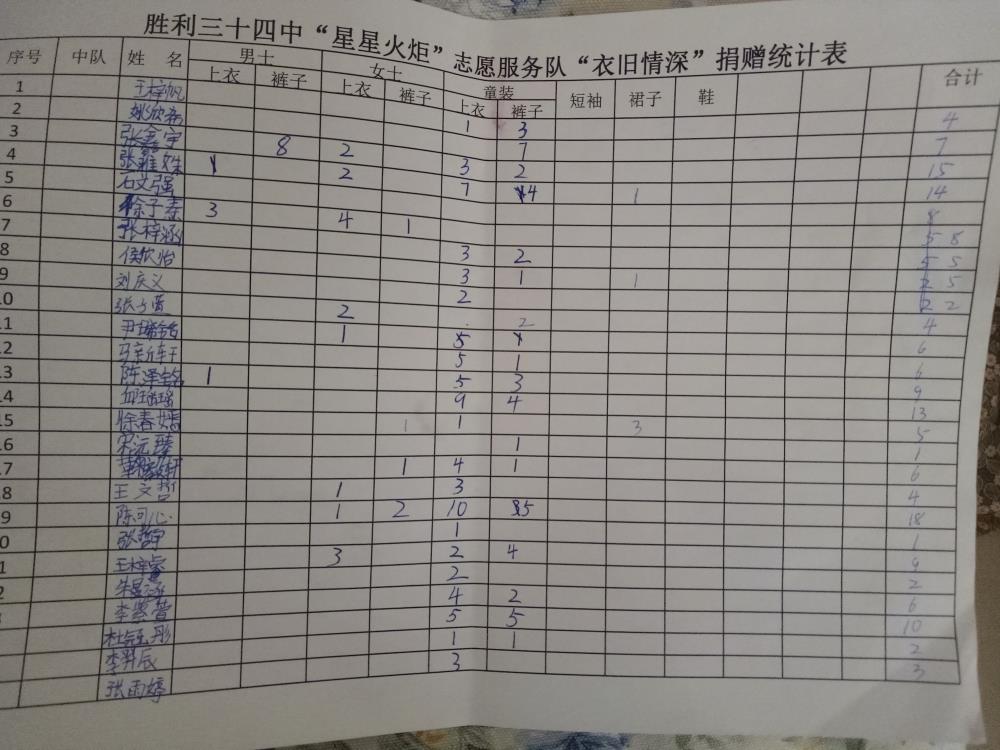 胜利三十四中“星星火炬”志愿服务队“衣旧情深”捐赠统计表
序号 中队 姓 名 男士 女士 童装 短袖 裙子 鞋 合计
上衣 裤子 上衣 裤子 上衣 裤子
1 王梓帆 1 3 4
2 姚欣希 7 7
3 张鑫宇 8 2 3 2 15
4 张雅姝 1 2 7 4 1 14
5 石文强
6 徐子泰 3 4 1 8
7 张梓涵 3 2 5 5
8 侯欣怡 3 1 1 5
9 刘庆义 2 2 2
10 2 4
11 1 5 6
12 5 1 6
13 陈泽铭 1 5 3 9
14 邱瑶瑶 9 4 13
15 徐春嫣 1 1 3 5
16 宋沅臻 1 1
17 1 4 1 6
18 王文哲 1 3 4
19 陈可心 1 2 10 5 18
张哲宇 1 1
王梓睿 3 2 4 9
朱显涵 2 2
李紫萱 4 2 6
杜冠彤 5 5 10
李羿辰 1 1 2
张雨婷 3 3